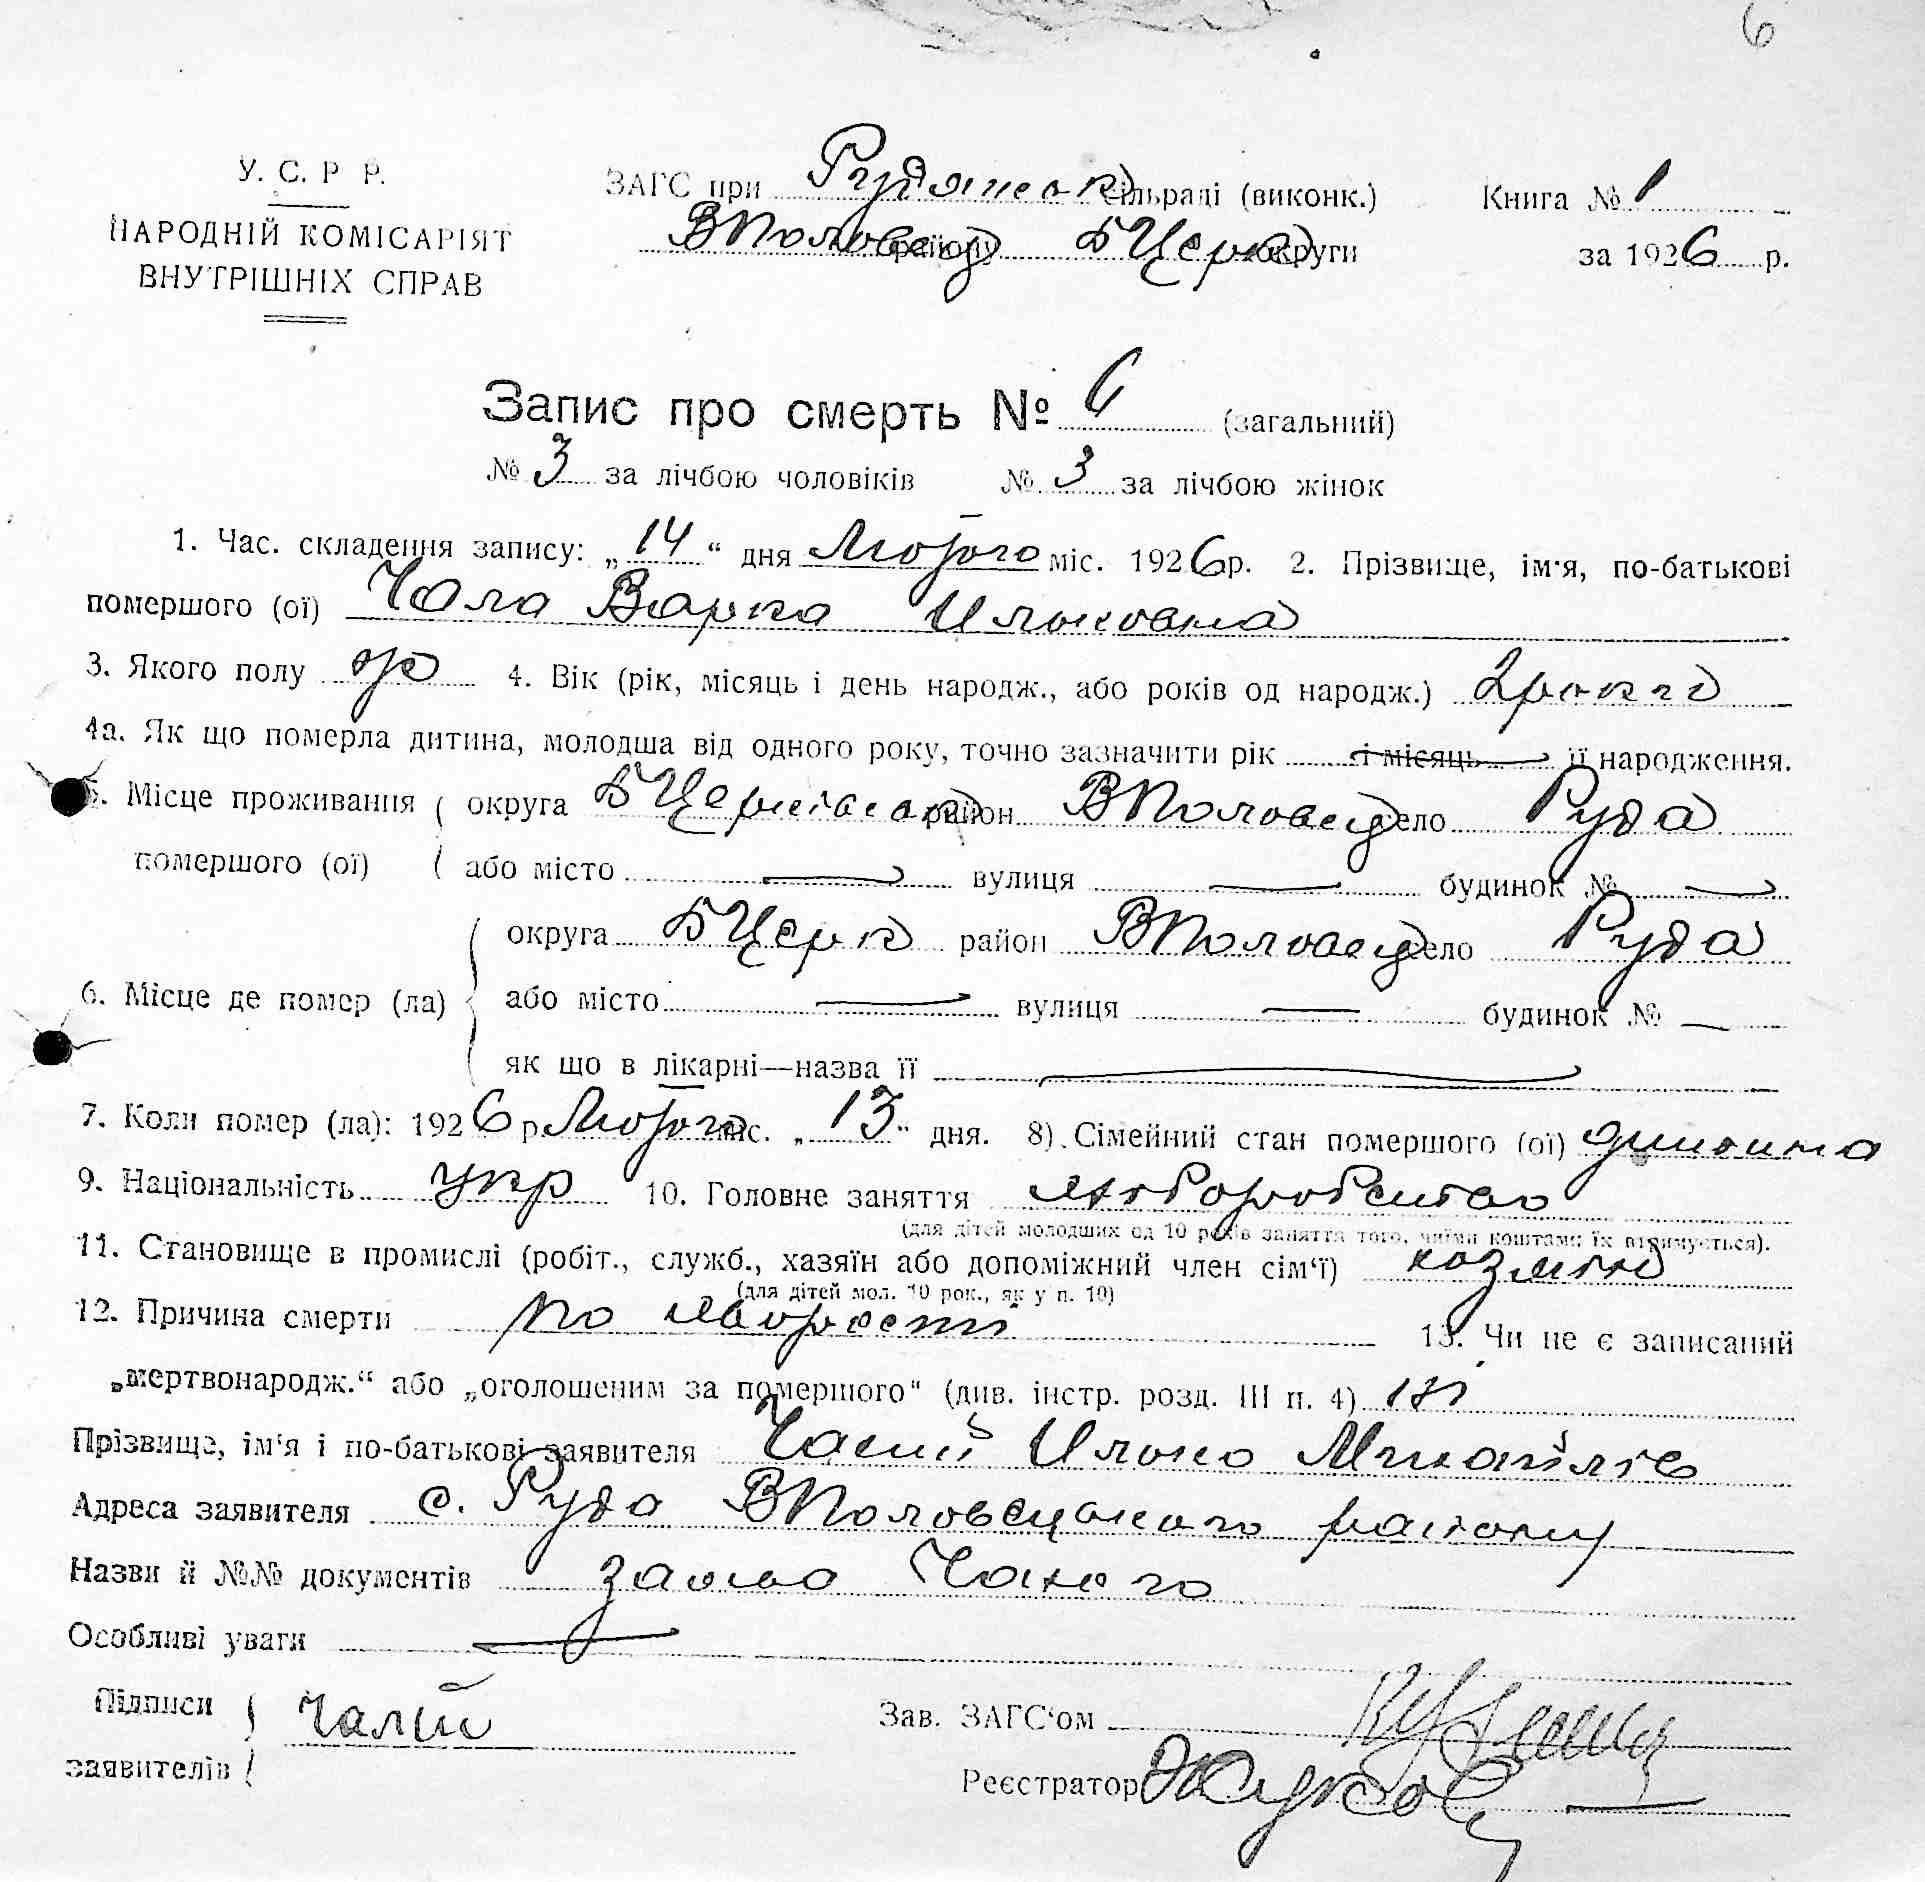 6
У. С. Р Р.
НАРОДНІЙ КОМІСАРІЯТ
ВНУТРІШНІХ СПРАВ
ЗАГС при Рудянськ сільраді (виконк.)
ВПоловец району БЦерк округи
Книга № 1
за 1926 р.
Запис про смерть № 6 (загальний)
№ 3 за лічбою чоловіків № 3 за лічбою жінок
1. Час. складення запису: „14“ дня Лютого міс. 1926р. 2. Прізвище, ім'я, по-батькові
помершого (ої) Чала Варка Ильковна
3. Якого полу 4. Вік (рік, місяць і день народж., або років од народж.) 2 роки
4а. Як що померла дитина, молодша від одного року, точно зазначити рік і місяць її народження.
5. Місце проживання округа БЦерківськ район ВПоловец село Руда
помершого (ої) або місто вулиця будинок №
округа БЦерк район ВПоловец село Руда
6. Місце де помер (ла) або місто вулиця будинок №
як що в лікарні—назва її
7. Коли помер (ла): 1926 р Лютого міс. „13“ дня. 8). Сімейний стан помершого (ої) дитина
9. Національність укр 10. Головне заняття хліборобство
(для дітей молодших од 10 років заняття того, чиїми коштами їх втримується).
11. Становище в промислі (робіт., служб., хазяїн або допоміжний член сім'ї)
(для дітей мол. 10 рок., як у п. 10)
12. Причина смерти по хворости 13. Чи не є записаний
„мертвонародж.“ або „оголошеним за помершого“ (див. інстр. розд. III п. 4) ні
Прізвище, ім'я і по-батькові заявителя Чалий Илько Михайлів
Адреса заявителя с. Руда ВПоловецького району
Назви й №№ документів заява Чалого
Особливі уваги
Підписи
заявителів
Чалий
Зав. ЗАГС'ом
Реєстратор